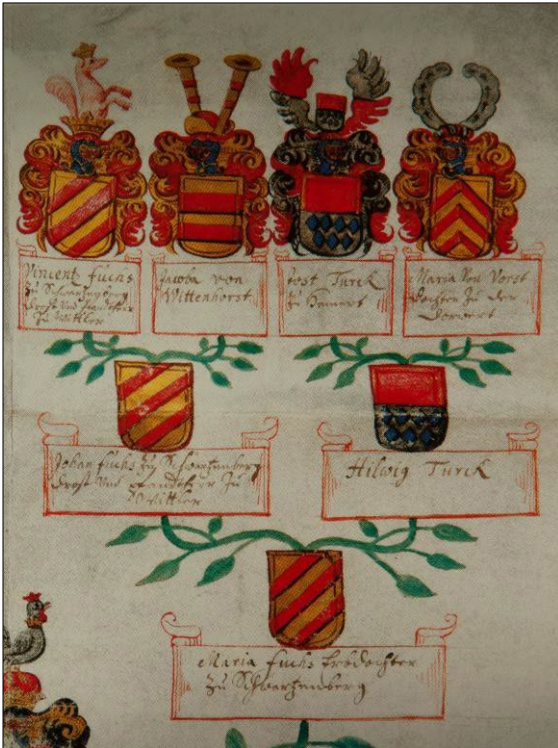 Vincentz fuchs
zu Schwartzenberg
Drost Und Pfandtherr
Zu Wittler
Jacoba von
Wittenhorst
Jost Turck
zu Hamert
Maria Von Vorst
Dochter zu der
Johan fuchs zu Schwartzenberg
Drost Und Pfandtherr Zu
Wittler
Hilwig Turck
Maria fuchs Erbdochter
zu Schwartzenberg